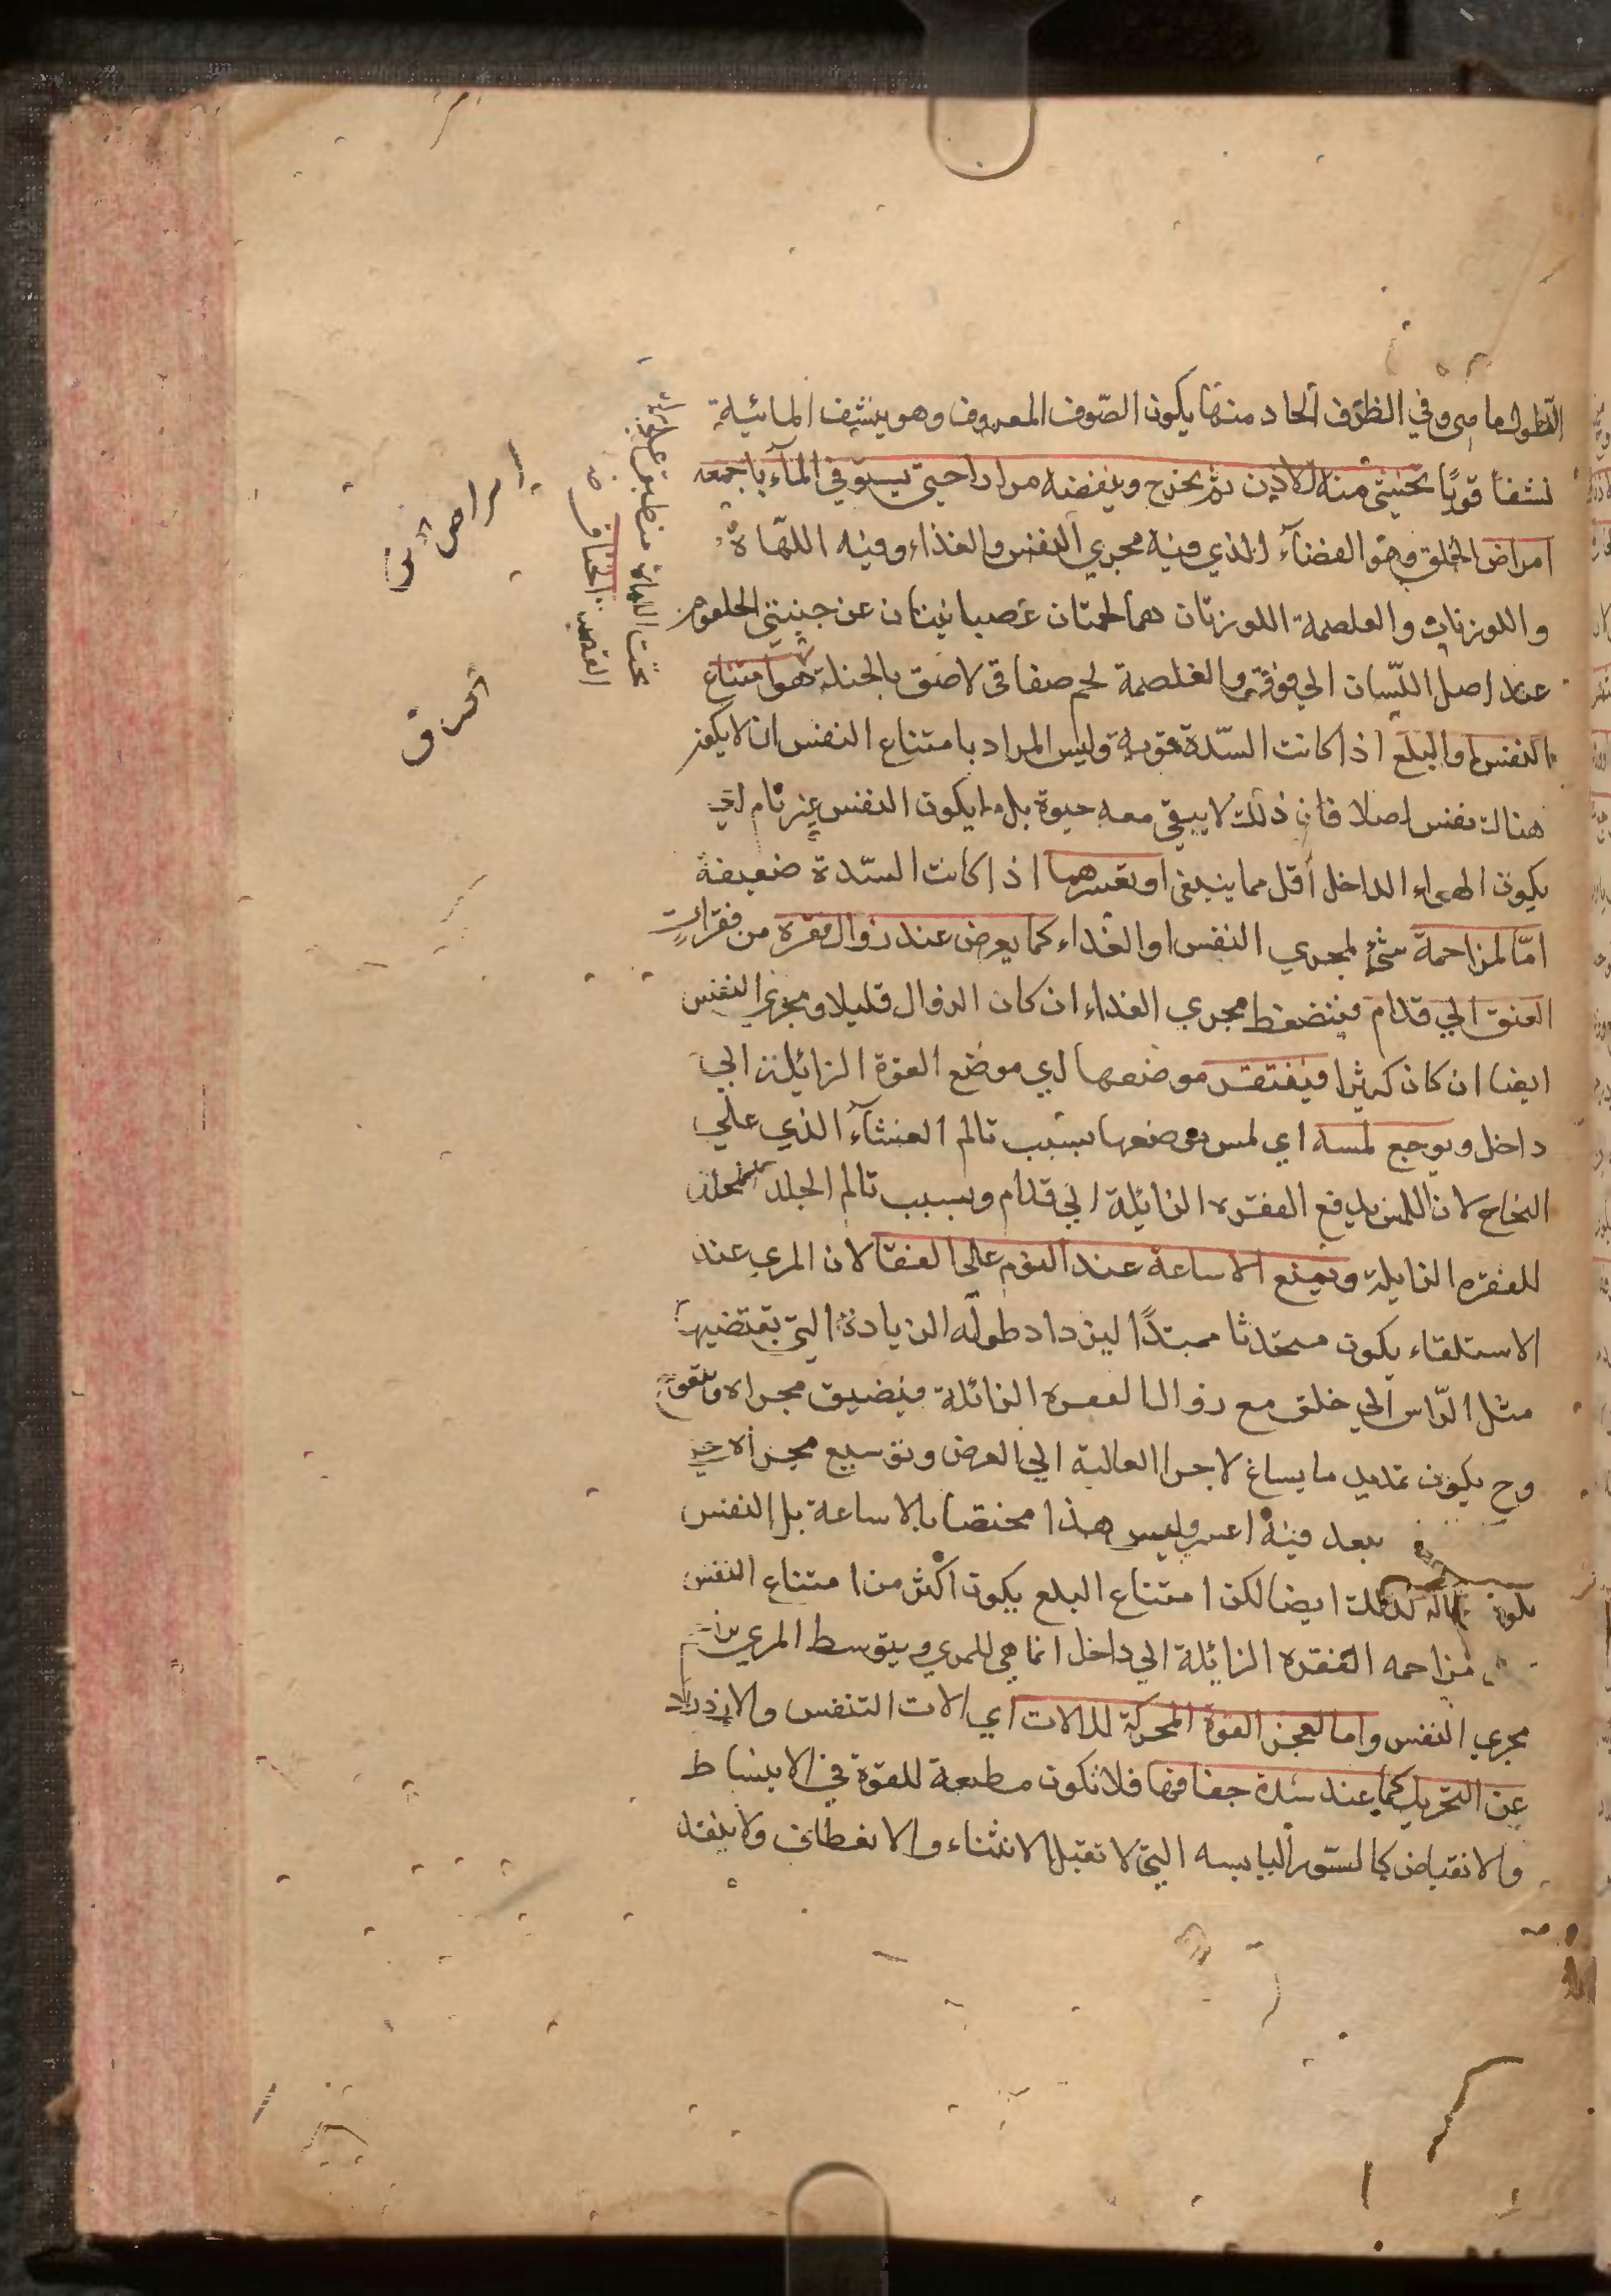 وفي الظرف الحاد منها يكون الصّوف المعروف وهو ينشف المائية
نشفا قويا تحشي منه الاذن ثم يخرج وينفضه مرارا حتي يستوفي المآء باجمعه
امراض الحلق وهو الفضآء الذي فيه مجري النفس والغذاء وفيه اللّهاة
واللوزتان والغلصمة اللوزتان هما لحمتان عصبانيتان عن جنبتي الحلقوم
عند اصل اللّسان الي فوق والغلصمة لحم صفاقي لاصق بالحنك هو امتناع
النفس او البلع اذا كانت السّدة قوية وليس المراد بامتناع النفس ان لا يكون
هناك نفس اصلا فان ذلك لا يبقي معه حيوة بل ما يكون النفس غير تام اي
يكون الهواء الداخل أقل مما ينبغي او تعسرهما اذا كانت السّدة ضعيفة
امّا لمزاحمة شئ لمجري النفس او الغداء كما يعرض عند زوال فقرة من فقرات
العنق الي قدام فينضغط مجري الغذاء ان كان الزوال قليلا ومجري النفس
ايضا ان كان كثيرا موضعها اي موضع الفقرة الزائلة الي
داخل ويوجع لمسه اي لمس موضعها بسبب تالم الغشآء الذي علي
النخاع لان اللمس يدفع الفقره الزائلة الي قدام وبسبب تالم الجلد
للفقره الزايلة ويمنع الاساغة عند النوم علي القفا لان المري عند
الاستلقاء يكون ممتدًا ليزداد طوله الزيادة التي يقتضيها
مثل الرّاس الي خلف مع زوال الفقره الزائلة فيضيق مجراه
وح يكون تمديد ما يساغ لاجرا العالية الي العرض وتوسيع مجراه
بعد فيه اعسر وليس هذا مختصا بالاساغة بل النفس
يكون حاله كذلك ايضا لكن امتناع البلع يكون اكثر من امتناع النفس
مزاحمه الفقره الزائلة الي داخل انما هي للمري ويتوسط المري
مجري النفس واما لعجز القوة المحركة للالات اي الات التنفس والازدراد
عن التحريك كما عند شدة جفافها فلا تكون مطيعة للقوة في الانبساط
والانقباض كالستور اليابسه التي لا تقبل الانثناء والانعطاف ولا ينفذ
امراض
الخناق